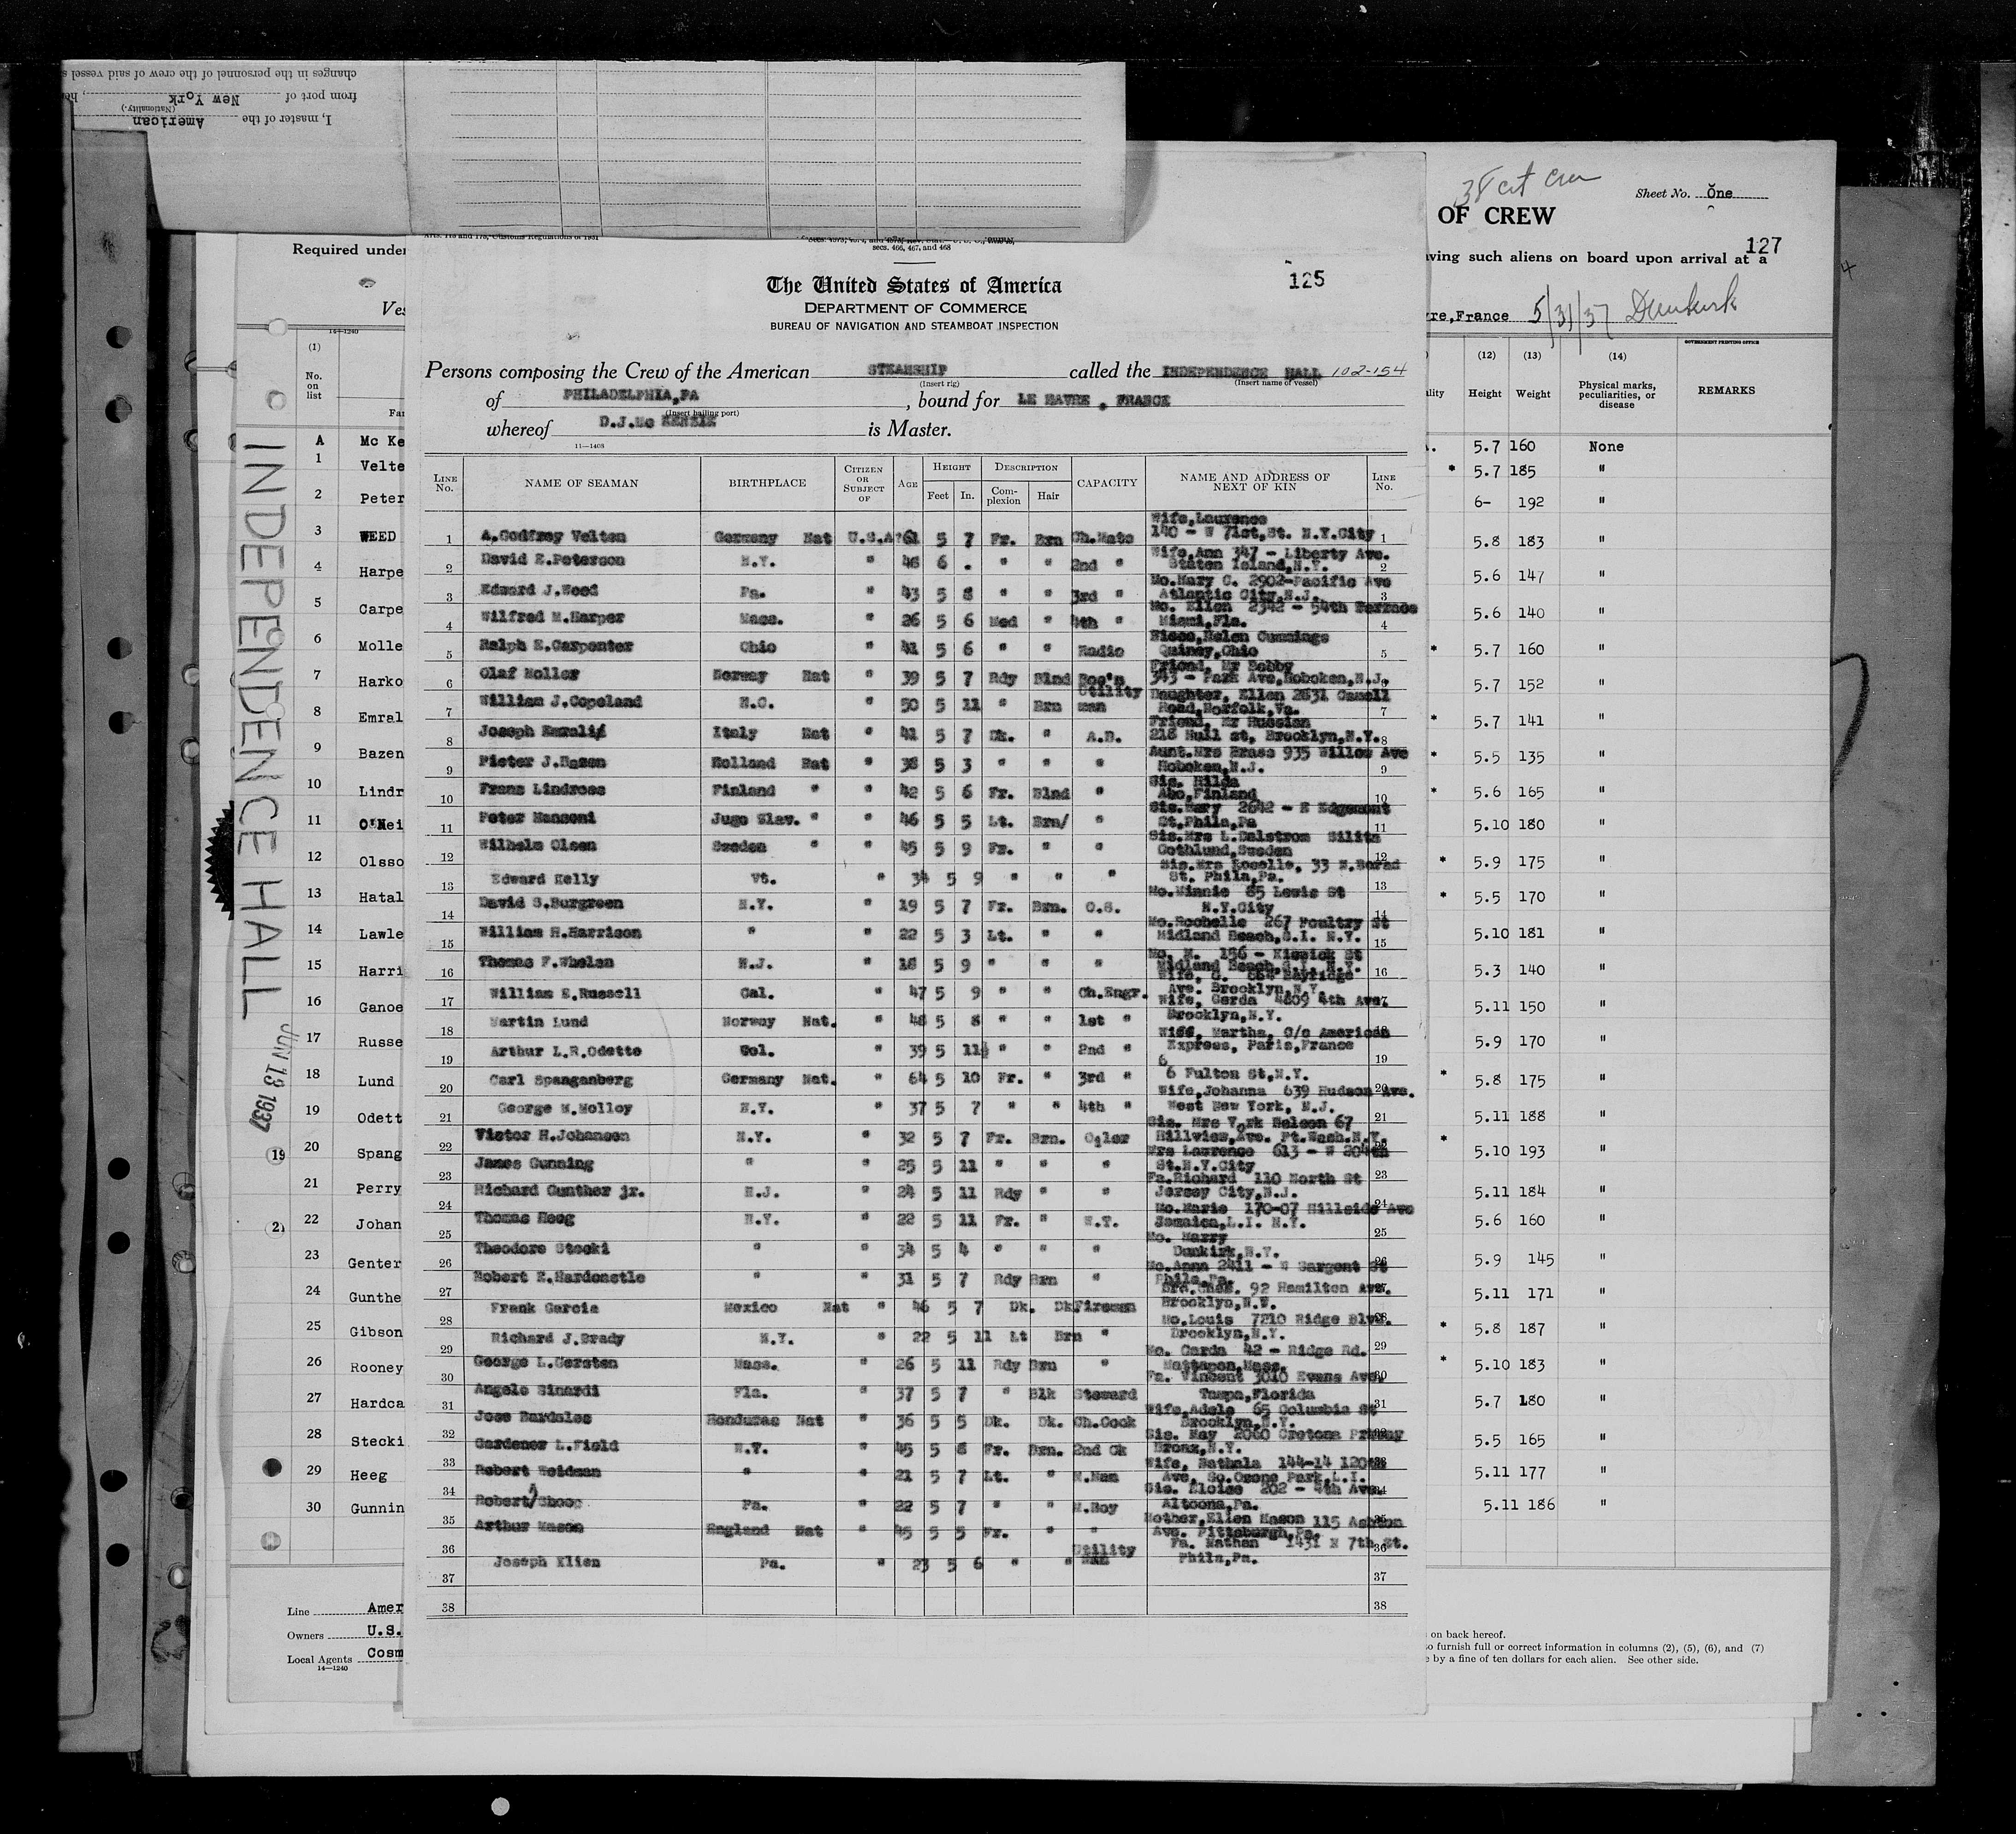 changes in the personnel of the crew of said vessel
from port of New York
(Nationality).
I, master of the American
Required under
14-1240
(1)
No. on list
A Mc Ke
1 Velte
2 Peter
3 WEED
4 Harpe
5 Carpe
6 Molle
7 Harko
8 Emral
9 Bazen
10 Lindr
11 O'Nei
12 Olsso
13 Hatal
14 Lawle
15 Harri
16 Ganoe
17 Russe
18 Lund
19 Odett
20 Spang
21 Perry
22 Johan
23 Genter
24 Gunthe
25 Gibson
26 Rooney
27 Hardca
28 Stecki
29 Heeg
30 Gunnin
Line Amer
Owners U.S.
Local Agents Cosm
14-1240
INDEPENDENCE HALL
JUN 13 1937
19
secs. 466, 467, and 468
The United States of America
125
DEPARTMENT OF COMMERCE
BUREAU OF NAVIGATION AND STEAMBOAT INSPECTION
Persons composing the Crew of the American STEAMSHIP called the INDEPENDENCE HALL 102-154
(Insert rig) (Insert name of vessel)
of PHILADELPHIA,PA , bound for LE HAVRE , FRANCE
(Insert hailing port)
whereof D.J.Mc KENZIE is Master.
11-1408
LINE No. NAME OF SEAMAN BIRTHPLACE CITIZEN OR SUBJECT OF AGE HEIGHT Feet In. DESCRIPTION Complexion Hair CAPACITY NAME AND ADDRESS OF NEXT OF KIN LINE No.
1 A.Godfrey Velten Germany Nat U.S.A 61 5 7 Fr. Brn Ch.Mate Wife,Laurence 140 - W 71st,St. N.Y.City 1
2 David E.Peterson N.Y. " 46 6 . " " 2nd " Wife,Ann 347 - Liberty Ave. Staten Island,N.Y. 2
3 Edward J.Weed Pa. " 43 5 8 " " 3rd " Mo.Mary C. 2902-Pacific Ave Atlantic City,N.J. 3
4 Wilfred M.Harper Mass. " 26 5 6 Med " 4th " Mo. Ellen 2342 - 54th Terrace Miami,Fla. 4
5 Ralph E.Carpenter Ohio " 41 5 6 " " Radio Niece,Helen Cummings Quincy,Ohio 5
6 Olaf Moller Norway Nat " 39 5 7 Rdy Blnd Bos'n Friend, Mr Bobby 343 - Park Ave,Hoboken,N.J. 6
7 William J.Copeland N.C. " 50 5 11 " Brn Utility man Daughter, Ellen 2831 Road,Norfolk,Va. 7
8 Joseph Emrali Italy Nat " 41 5 7 Dk. " A.B. Friend, Mr Russian 218 Hull st, Brooklyn,N.Y. 8
9 Pieter J.Bazen Holland Nat " 38 5 3 " " " Aunt.Mrs Brass 935 Willow Ave Hoboken,N.J. 9
10 Frans Lindroos Finland " " 42 5 6 Fr. Blnd " Sis. Hilda Abo,Finland 10
11 Peter Mansoni Jugo Slav. " " 46 5 5 Lt. Brn/ " Sis.Mary 2642 - E Edgemont St,Phila,Pa 11
12 Wilhelm Olsen Sweden " " 45 5 9 Fr. " " Sis.Mrs L.Dalstrom Silita Gothlund,Sweden 12
13 Edward Kelly Vt. " 34 5 9 " " " Sis.Mrs Roselle, 33 N.Borad St. Phila,Pa. 13
14 David S.Burgreen N.Y. " 19 5 7 Fr. Brn. O.S. Mo.Minnie 85 Lewis St N.Y.City 14
15 William H.Harrison " " 22 5 3 Lt. " " Mo.Rochelle 267 Poultry St Midland Beach,S.I. N.Y. 15
16 Thomas F.Whelan N.J. " 18 5 9 " " " Mo. M. 156 - Kiswick St Midland Beach,S.I. N.Y. 16
17 William E.Russell Cal. " 47 5 9 " " Ch.Engr. Wife, G. 664 Bayridge Ave. Brooklyn,N.Y. 17
18 Martin Lund Norway Nat. " 48 5 8 " " 1st " Wife, Gerda 4809 4th Ave. Brooklyn,N.Y. 18
19 Arthur L.R.Odette Col. " 39 5 11½ " " 2nd " Wife, Martha, C/o American Express, Paris,France 19
20 Carl Spangenberg Germany Nat. " 64 5 10 Fr. " 3rd " 6 6 Fulton St,N.Y. 20
21 George M.Molloy N.Y. " 37 5 7 " " 4th " Wife,Johanna 639 Hudson Ave. West New York, N.J. 21
22 Victor H.Johansen N.Y. " 32 5 7 Fr. Brn. Oiler Sis. Mrs York Nelson 67 Hillview,Ave. Pt.Wash.N.Y. 22
23 James Gunning " " 25 5 11 " " " Mrs Laurence 613 - W 204th St.N.Y.City 23
24 Richard Gunther jr. N.J. " 24 5 11 Rdy " " Fa.Richard 110 North St Jersey City,N.J. 24
25 Thomas Heeg N.Y. " 22 5 11 Fr. " W.T. Mo.Marie 170-07 Hillside Ave Jamaica,L.I. N.Y. 25
26 Theodore Stecki " " 34 5 4 " " " Mo. Harry Dunkirk,N.Y. 26
27 Robert E.Hardcastle " " 31 5 7 Rdy Brn " Mo.Anna 2411 - W Sargent St Phila,Pa. 27
28 Frank Garcia Mexico Nat " 46 5 7 Dk. Dk Fireman Bro.Chas. 92 Hamilton Ave. Brooklyn,N.Y. 28
29 Richard J.Brady N.Y. " 22 5 11 Lt Brn " Mo.Louis 7210 Ridge Blvd. Brooklyn,N.Y. 29
30 George L.Gersten Mass. " 26 5 11 Rdy Brn " Mo. Garda 42 - Ridge Rd. Mattapon,Mass. 30
31 Angelo Sinardi Fla. " 37 5 7 " Blk Steward Fa. Vincent 3010 Evans Ave. Tampa,Florida 31
32 Jose Bardales Honduras Nat " 36 5 5 Dk. Dk. Ch.Cook Wife,Adele 65 Columbia St Brooklyn,N.Y. 32
33 Gardener L.Field N.Y. " 45 5 8 Fr. Brn. 2nd Ck Sis. May 2060 Cretona Bronx,N.Y. 33
34 Robert Weidman " " 21 5 7 Lt. " M.Man Wife, Bathala 144-14 120th Ave, So.Ozone Park,L.I. 34
35 Robert Shoop Pa. " 22 5 7 " " M.Boy Sis. Eloise 202 - 4th Ave. Altoona,Pa. 35
36 Arthur Mason England Nat " 45 5 5 Fr. " " Mother,Ellen Mason 115 Ashton Ave. Pittsburgh,Pa. 36
37 Joseph Klien Pa. " 23 5 6 " " Utility Man Fa. Nathan 1431 N 7th St. Phila,Pa. 37
38 38
38 cit crew
Sheet No. One
OF CREW
127
ving such aliens on board upon arrival at a
re,France 5/31/37 Dunkirk
GOVERNMENT PRINTING OFFICE
(12) Height (13) Weight (14) Physical marks, peculiarities, or disease REMARKS
5.7 160 None
* 5.7 185 "
6- 192 "
5.8 183 "
5.6 147 "
5.6 140 "
* 5.7 160 "
5.7 152 "
* 5.7 141 "
* 5.5 135 "
* 5.6 165 "
5.10 180 "
* 5.9 175 "
* 5.5 170 "
5.10 181 "
5.3 140 "
5.11 150 "
5.9 170 "
* 5.8 175 "
5.11 188 "
* 5.10 193 "
5.11 184 "
5.6 160 "
5.9 145 "
5.11 171 "
* 5.8 187 "
* 5.10 183 "
5.7 180 "
5.5 165 "
5.11 177 "
5.11 186 "
on back hereof.
to furnish full or correct information in columns (2), (5), (6), and (7)
by a fine of ten dollars for each alien. See other side.